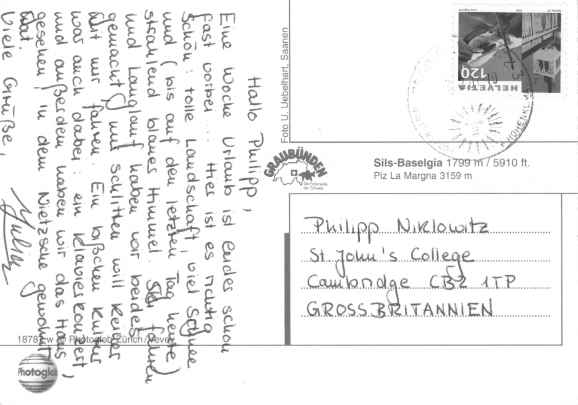 Hallo Philipp,
Eine Woche Urlaub ist leider schon
fast vorbei... Hier ist es richtig
schön: tolle Landschaft, viel Schnee
und (bis auf den letzten Tag heute)
strahlend blauer Himmel. Ski fahren
und Langlauf haben wir beides
gemacht, nur Schlitten will keiner
mit mir fahren. Ein bißchen Kultur
war auch dabei: ein Klavierkonzert
und außerdem haben wir das Haus
gesehen, in dem Nietzsche gewohnt
hat.
Viele Grüße,
Julia
Foto U. Uebelhart, Saanen
HELVETIA
120
GRAUBÜNDEN
Sils-Baselgia 1799 m / 5910 ft.
Piz La Margna 3159 m
Philipp Niklowitz
St. John's College
Cambridge CB2 1TP
GROSSBRITANNIEN
© Photoglob Zürich/Vevey
Photoglob